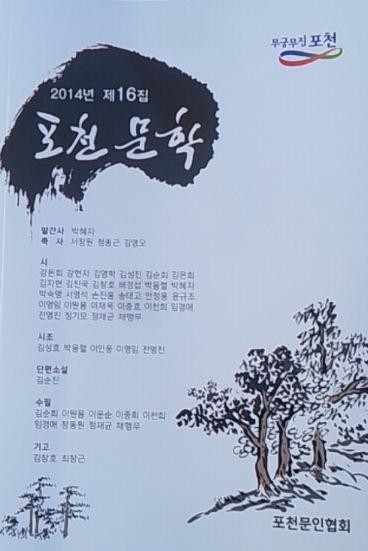 무궁무진 포천
2014년 제16집
포천 문학
발간사 박혜자
축 사 서장원 정종근 김영오
시
강돈희 강현자 김명학 김성진 김순희 김은희
김지현 김진국 김창호 배경섭 박용렬 박혜자
박숙영 서영석 손진홍 송태고 안창웅 윤규조
이명임 이원용 이재욱 이중효 이천희 임경애
전영진 정기모 정재균 채행무
시조
김성호 박용렬 이인웅 이명임 전영진
단편소설
김순진
수필
김순희 이원용 이운순 이중희 이천희
임경애 장동원 정재균 채행무
기고
김창호 최창근
포천문인협회